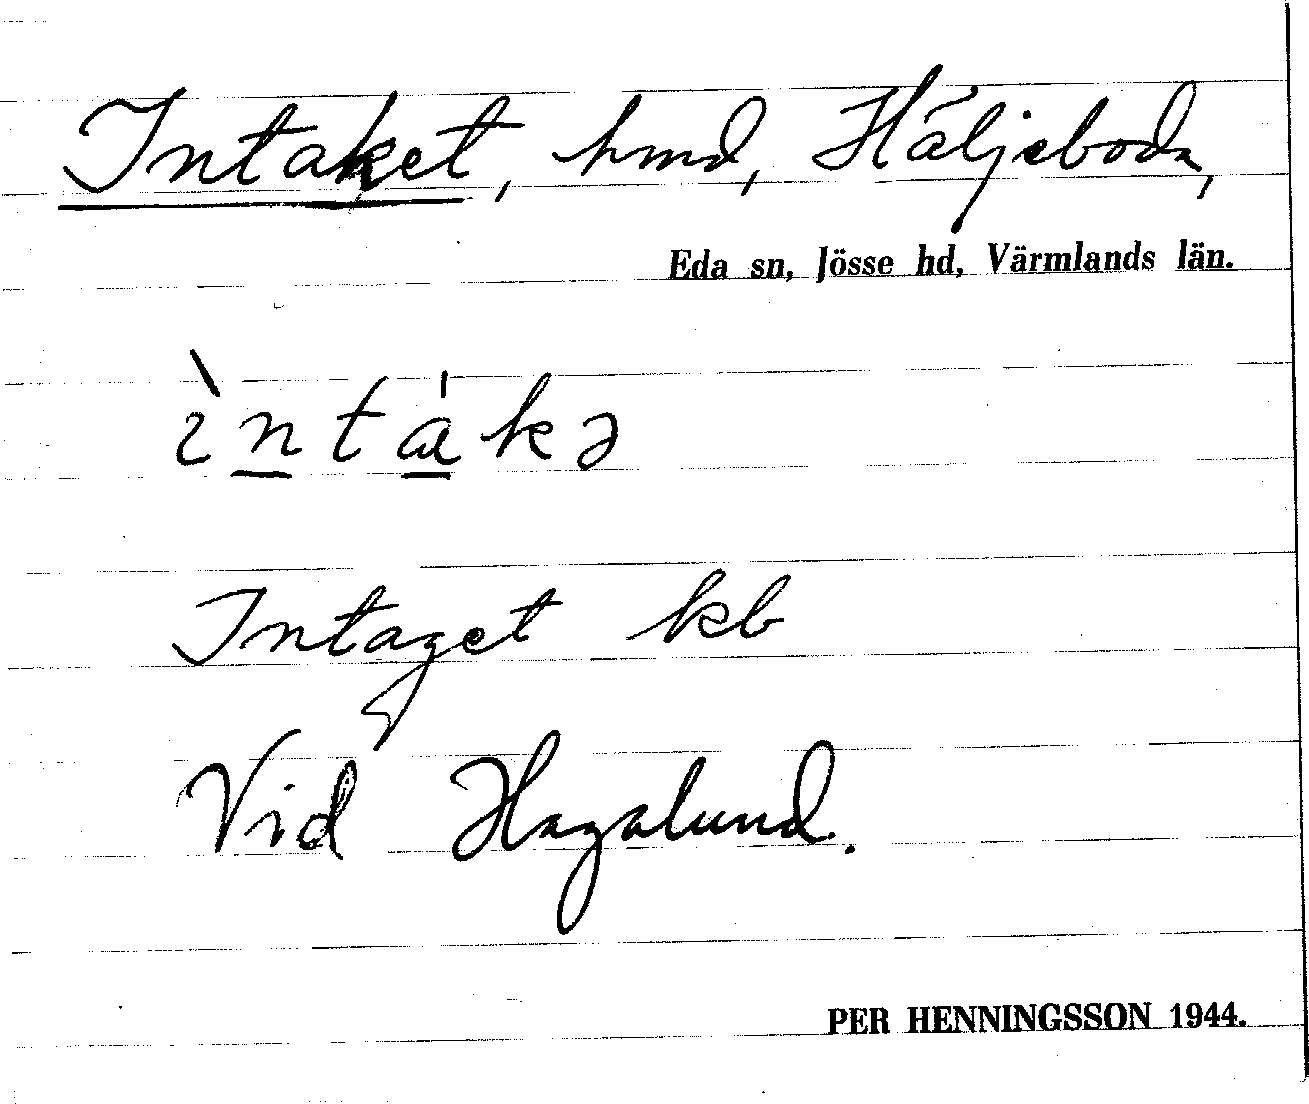 Intaket, hmd, Häljeboda,
Eda sn, Jösse hd, Värmlands län.
ìnta̍kə
Intaget kb
Vid Hagalund.
PER HENNINGSSON 1944.